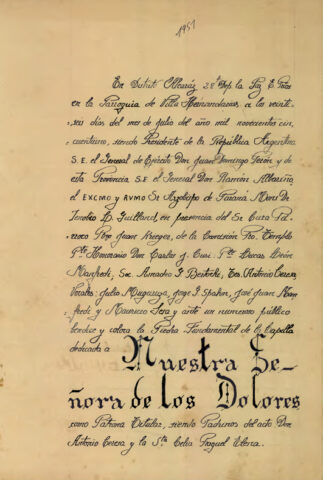 1951
En Distrito Alcaráz 2º Dep. la Paz E. Ríos
en la Parroquia de Villa Hernandarias, a los veinti-
seis días del mes de Julio del año mil novecientos cin-
cuentiuno, siendo Presidente de la República Argentina
S. E. el General de Ejército Don Juan Domingo Perón y de
esta Provincia S. E. el General Don Ramón Albariño,
el EXCMO y RVMO Sr Arzobispo de Paraná Mons Dr
Zenobio L. Guilland, en presencia del Sr Cura Pá-
rroco Pbro Juan Kueger, de la Comisión Pro. Templo
Pte Honorario Don Carlos J. Curi, Pte Lucas León
Manfredi, Sec. Amadeo J. Bertochi, Tes. Antonio Cerera
Vocales: Julio Muguruza, Jorge J. Spahn, José Juan Man-
fredi y Mauricio Sera y ante un numeroso público
bendice y coloca la Piedra Fundamental de la Capilla
dedicada a
Nuestra Se-
ñora de los Dolores
como Patrona Titular, siendo Padrinos del acto Don
Antonio Cerera y la Sta Celia Raquel Elena.